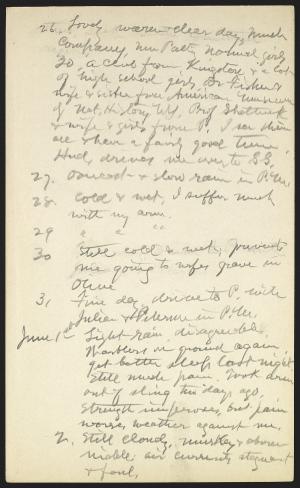 26. Lovely warm clear day, Much
company, New Paltz Normal girls
30, a club from Kingston & a lot
of high school girls, Dr Fisher &
wife & sister from American Museum
of Nat, History NY, Prof Shattuck
& wife & girls from P. I see them
all & have a fairly good time.
Hud, drives me over to S.S.
27. Overcast & slow rain in P.M.
28. Cold & wet, I suffer much
with my arm.
29 " " "
30 Still cold & wet, prevents
me going to wifes grave in
Olive
31 Fine day, drive to P. with
Julian & in P.M.
June 1st Light rain disagreeable.
Warblers on ground again
get better sleep last night
Still much pain. Took arm
out of sling two days ago,
Strength improves, but pain
worse, weather against me,
2. Still cloudy, murky & abom-
inable; air currents stagnant
& foul,